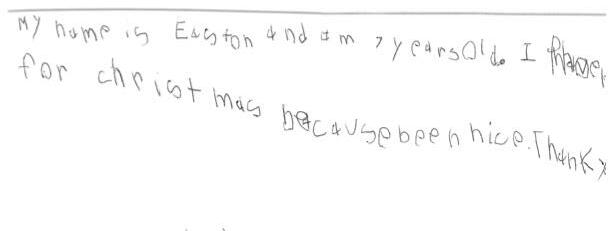 My name is Easton and am 7 years old. I
for christmas because been nice. Thank